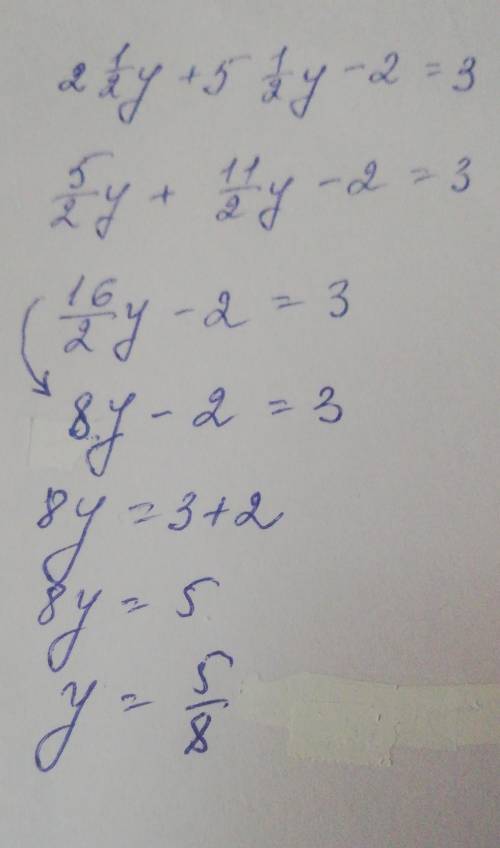 2 1/2 y + 5 1/2 y - 2 = 3
5/2 y + 11/2 y - 2 = 3
16/2 y - 2 = 3
8y - 2 = 3
8y = 3 + 2
8y = 5
y = 5/8